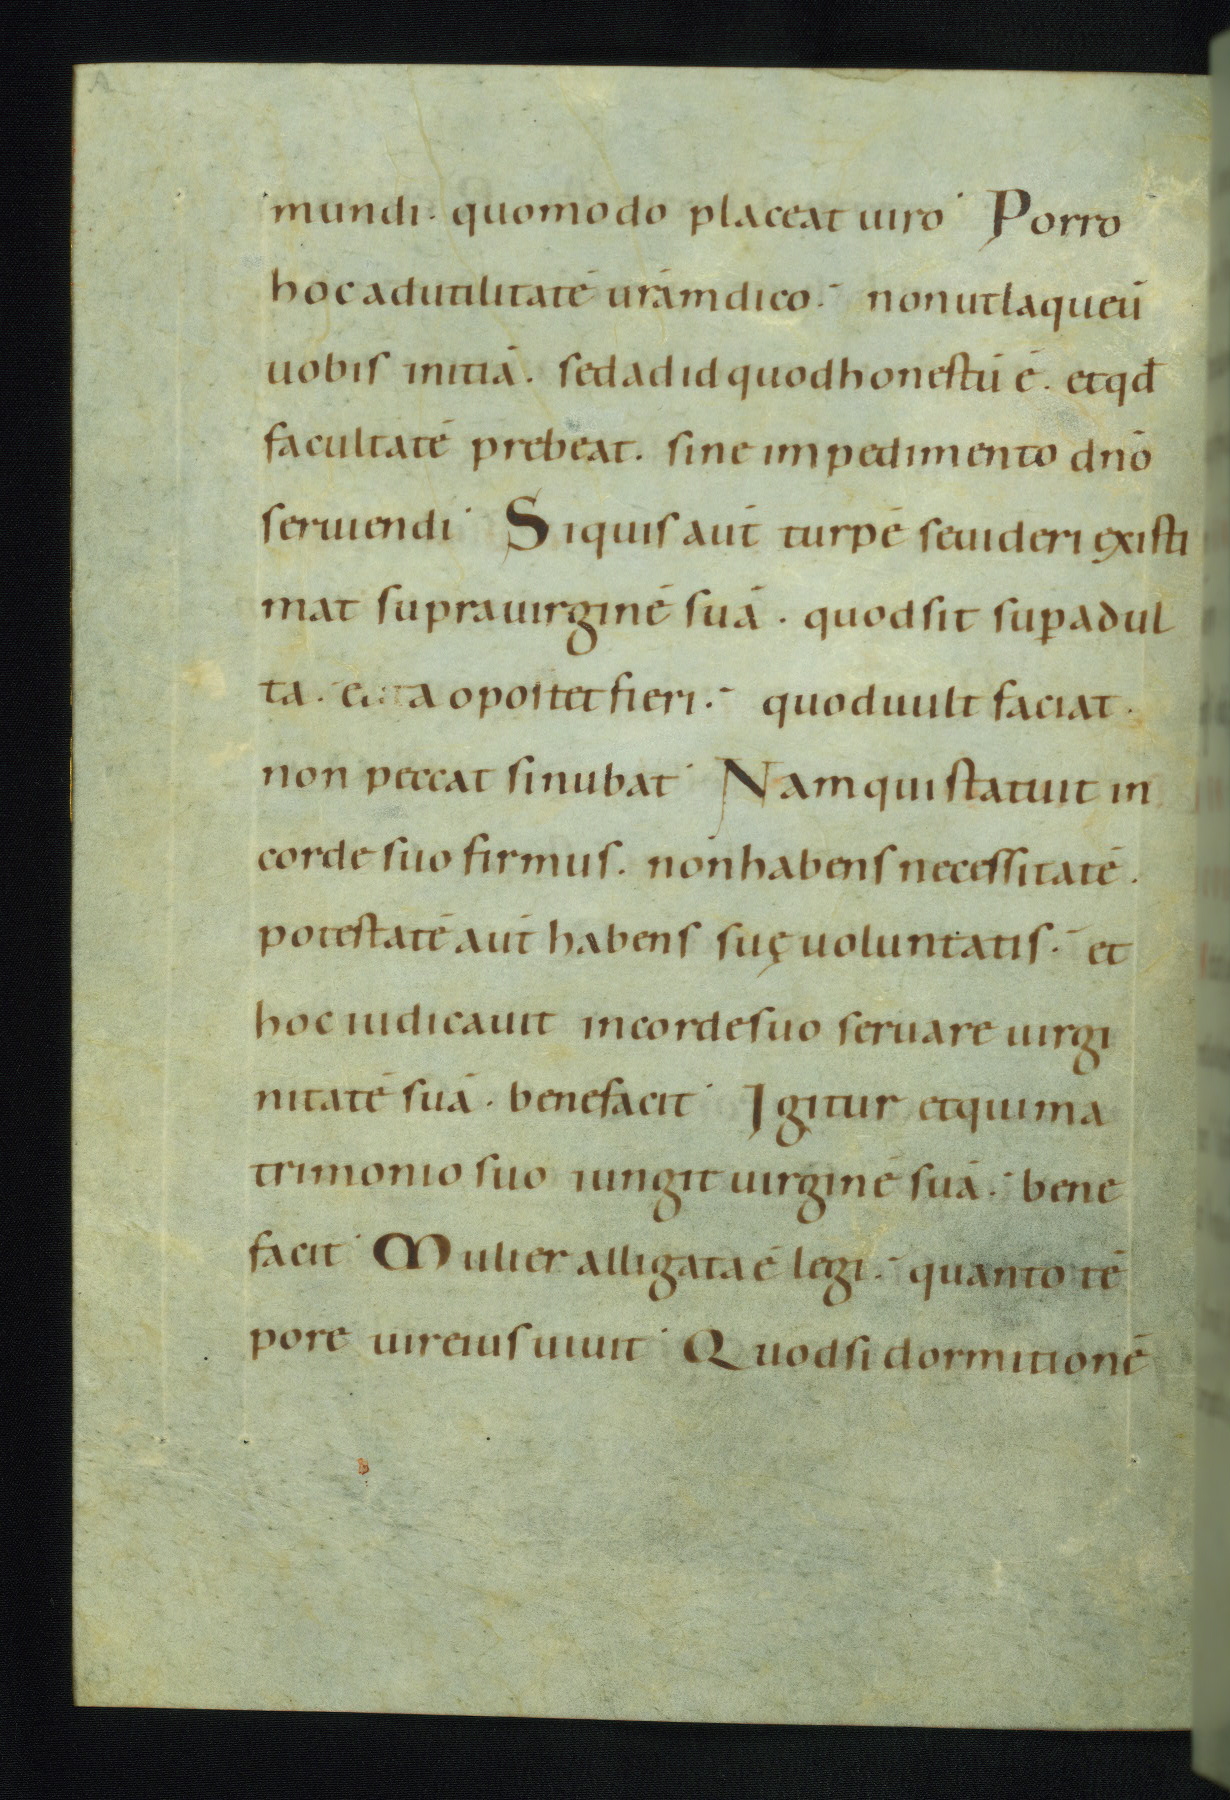 mundi. quomodo placeat uiro. Porro
hoc ad utilitatē urām dico. non ut laqueū
uobis initiā. sed ad id quod honestū ē. et qđ
facultatē prebeat. sine impedimento dnō
seruiendi. Si quis aut̄ turpē se uideri existi
mat supra uirginē suā. quod sit suꝑ adul
ta. et ita oportet fieri. quod uult faciat.
non peccat si nubat. Nam qui statuit in
corde suo firmus. non habens necessitatē.
potestatē aut̄ habens suę uoluntatis. et
hoc iudicauit in corde suo seruare uirgi
nitatē suā. bene facit. Igitur et qui ma
trimonio suo iungit uirginē suā. bene
facit. Mulier alligata ē legi. quanto tē
pore uir eius uiuit. Quod si dormitionē